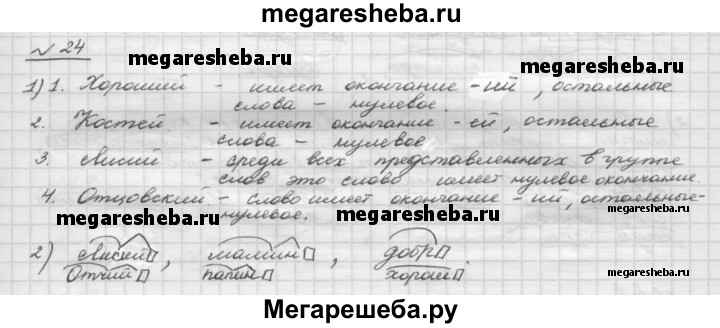 megaresheba.ru
№ 24
megaresheba.ru megaresheba.ru
1) 1. Хороший - имеет окончание -ий, остальные
слова - нулевое.
2. Костей - имеет окончание -ей, остальные
слова - нулевое.
3. Лисий - среди всех представленных в группе
слов это слово имеет нулевое окончание.
4. Отцовский - слово имеет окончание -ий, остальные -
нулевое.
megaresheba.ru megaresheba.ru
2) Лисий, мамин, добр
Отчий папин хорош.
megaresheba.ru megaresheba.ru
Мегарешеба.ру